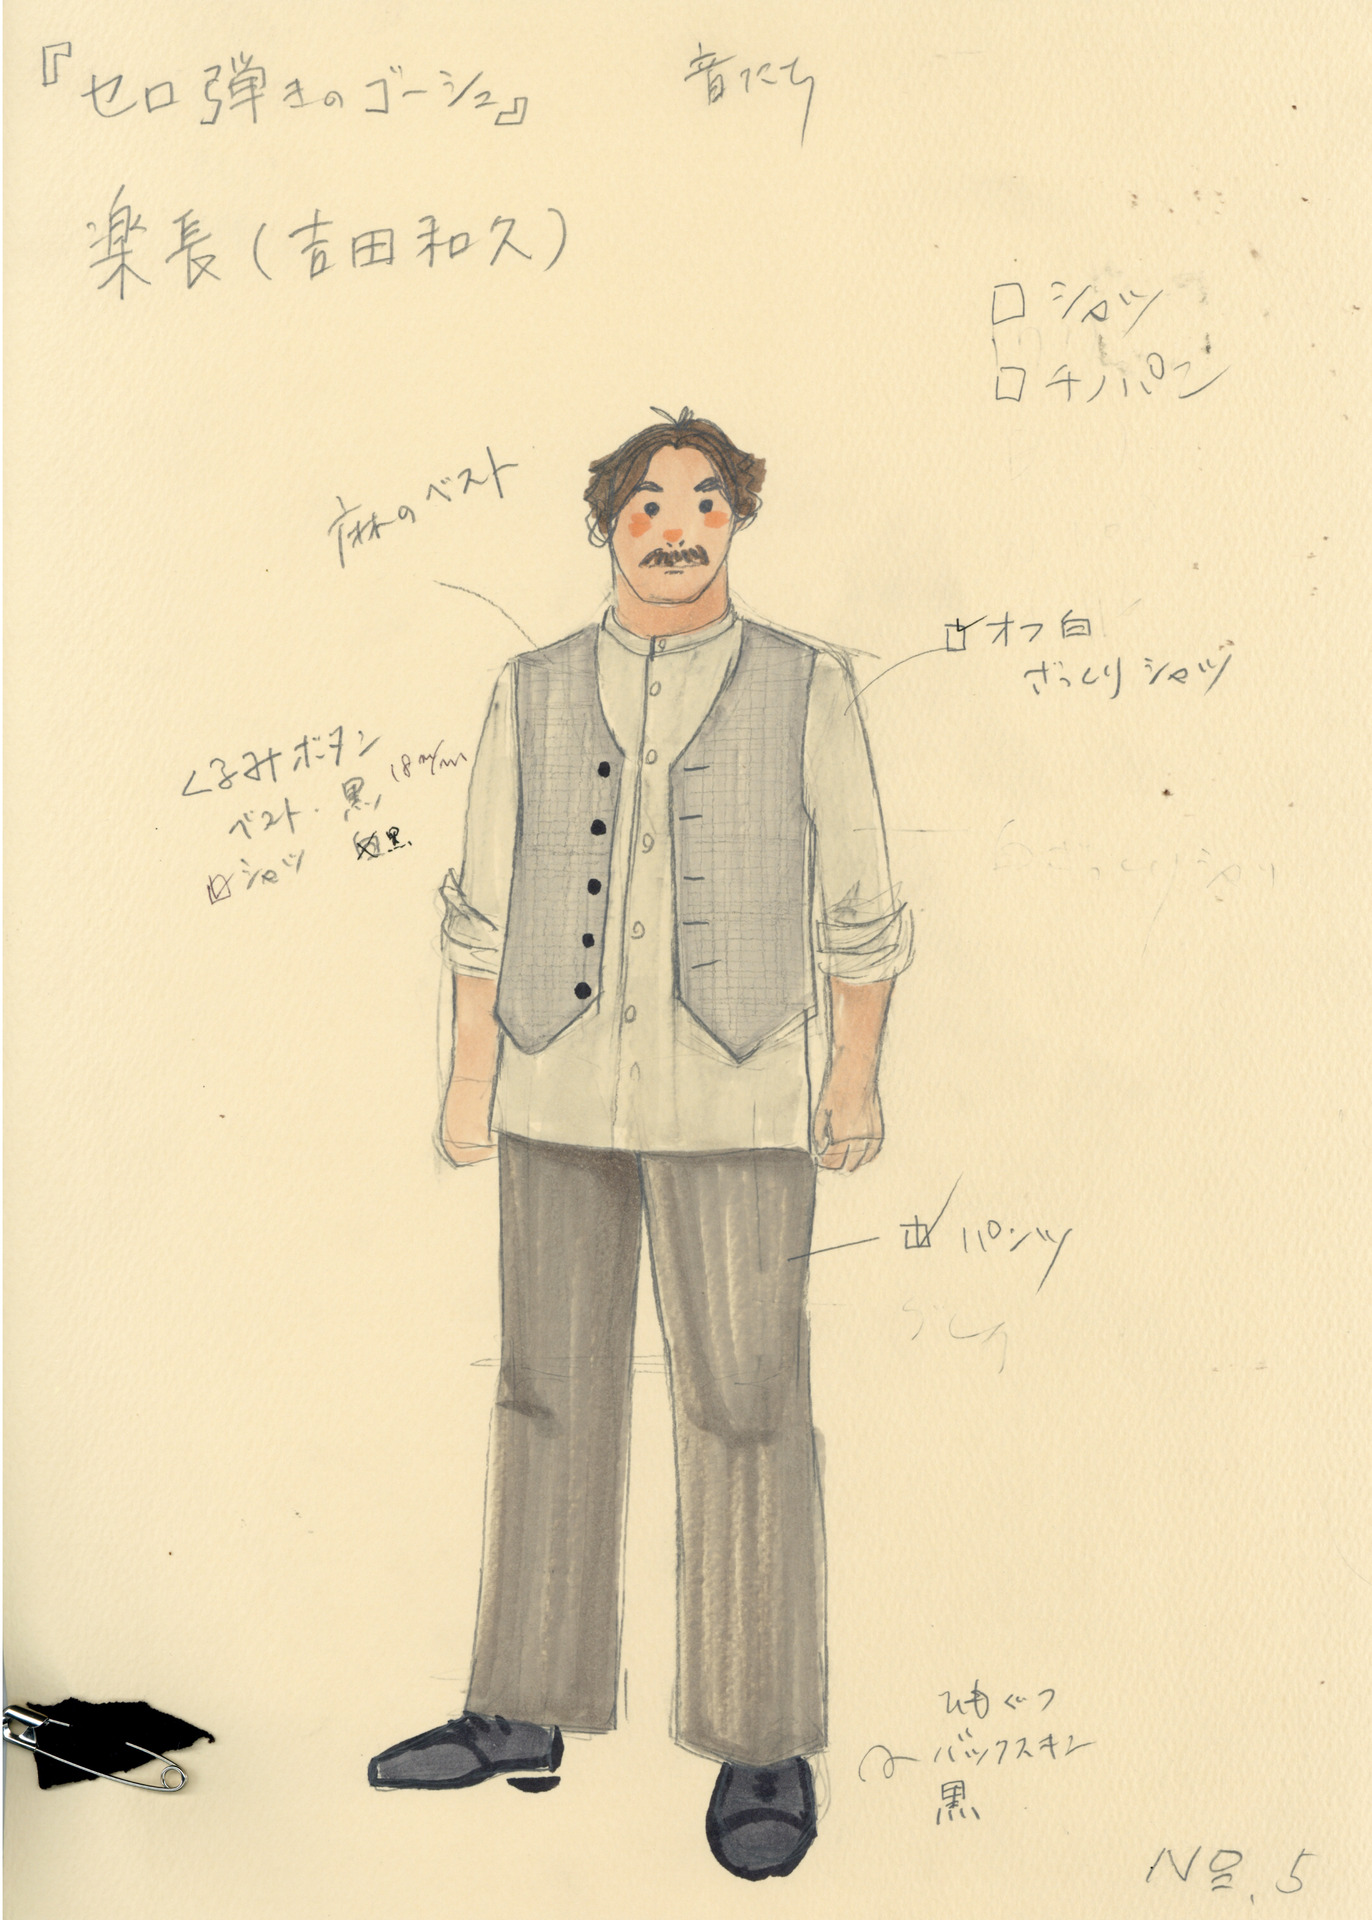 『セロ弾きのゴーシュ』
音たち
楽長（吉田和久）
□ シャツ
□ チノパン
麻のベスト
☑ オフ白
ざっくりシャツ
くるみボタン
ベスト・黒 18m/m
☑ シャツ 黒
☑ パンツ
グレー
ひもぐつ
バックスキン
黒
No.5